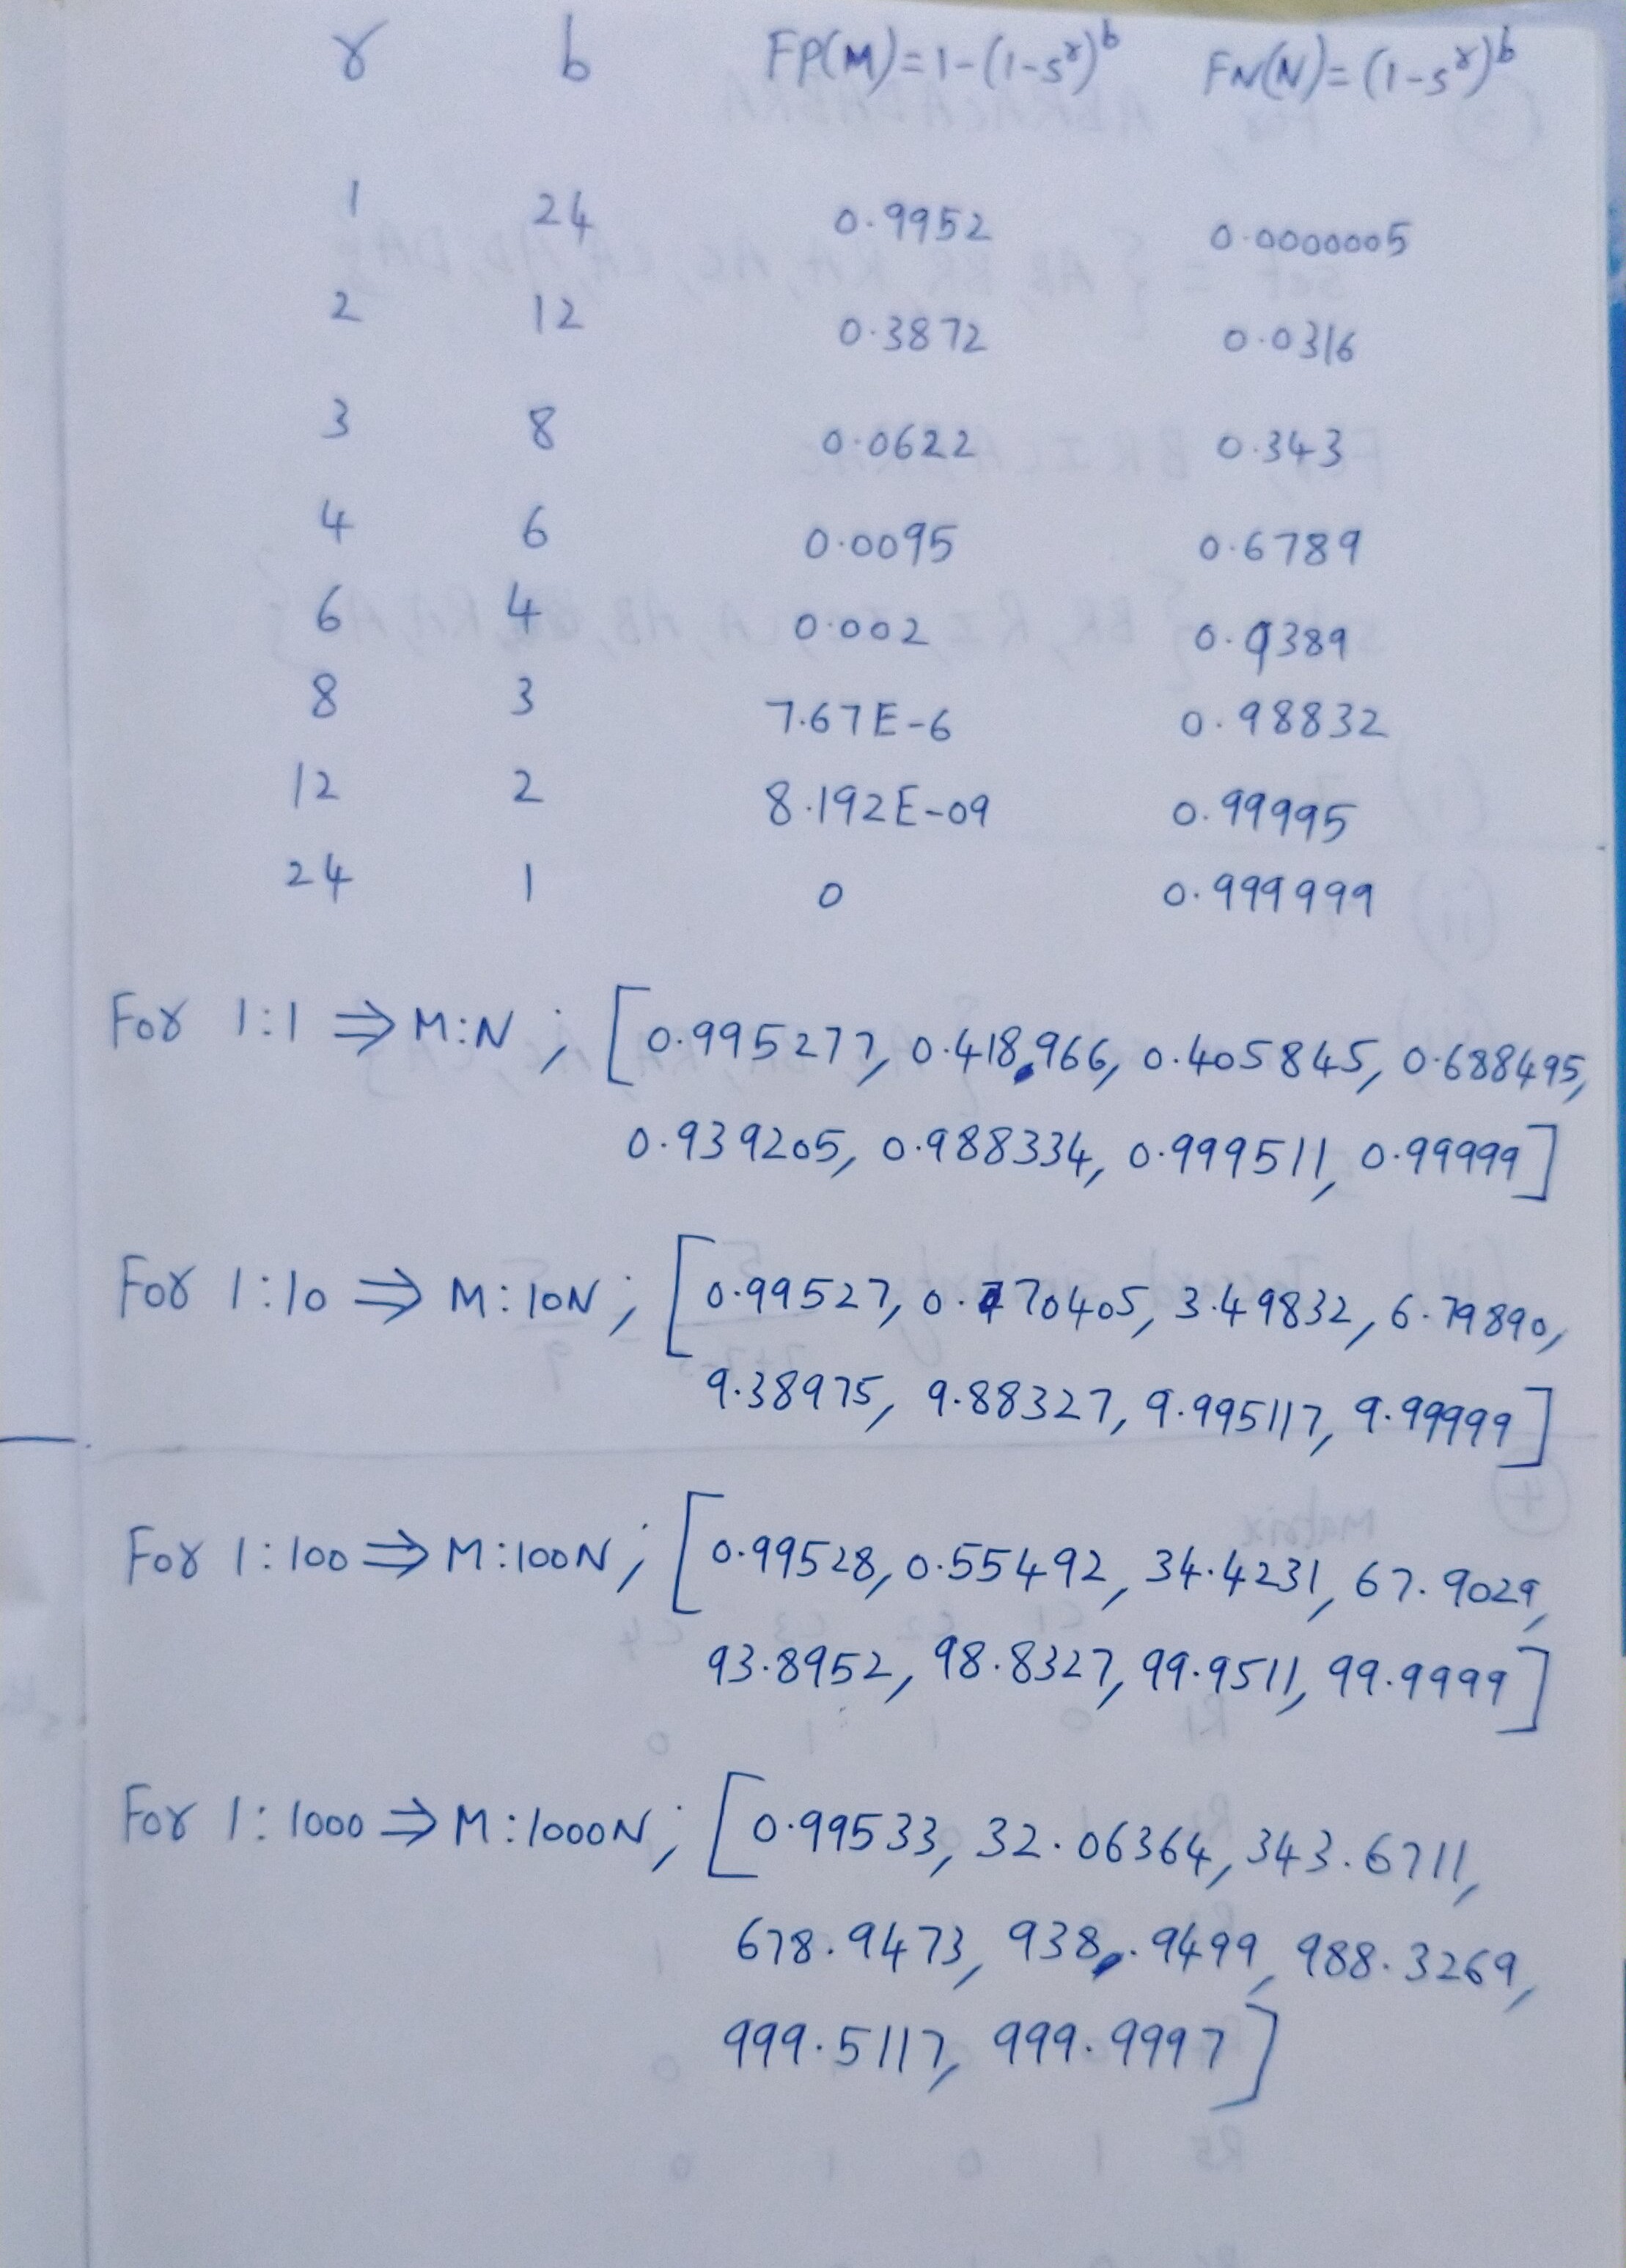 r b FP(M)=1-(1-s^r)^b FN(N)=(1-s^r)^b
1 24 0.9952 0.0000005
2 12 0.3872 0.0316
3 8 0.0622 0.343
4 6 0.0095 0.6789
6 4 0.002 0.9389
8 3 7.67E-6 0.98832
12 2 8.192E-09 0.99995
24 1 0 0.999999
For 1:1 ⇒ M:N ; [0.995277, 0.418966, 0.405845, 0.688495,
0.939205, 0.988334, 0.999511, 0.99999]
For 1:10 ⇒ M:10N ; [0.99527, 0.770405, 3.49832, 6.79890,
9.38975, 9.88327, 9.995117, 9.99999]
For 1:100 ⇒ M:100N ; [0.99528, 0.55492, 34.4231, 67.9029,
93.8952, 98.8327, 99.9511, 99.9999]
For 1:1000 ⇒ M:1000N ; [0.99533, 32.06364, 343.6711,
678.9473, 938.9499, 988.3269,
999.5117, 999.9997]